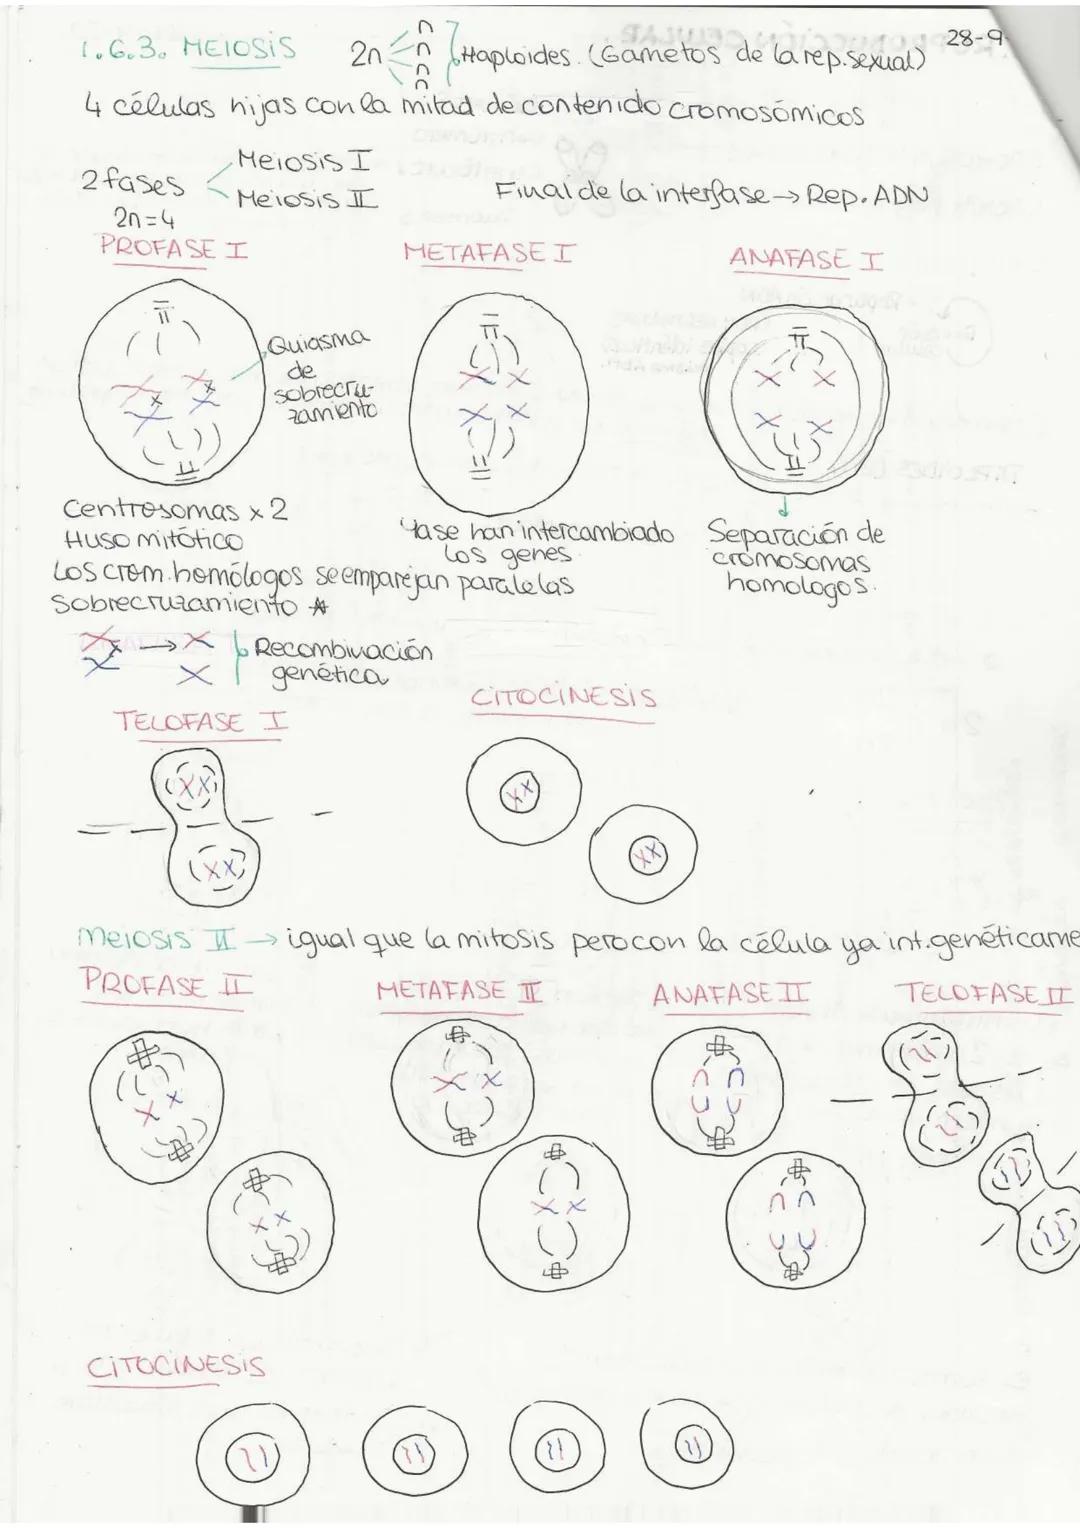 28-9
1.6.3. MEIOSIS 2n n n n n Haploides. (Gametos de la rep. sexual)
4 células hijas con la mitad de contenido cromosómicos
2 fases Meiosis I
Meiosis II
Final de la interfase → Rep. ADN
2n=4
PROFASE I METAFASE I ANAFASE I
Quiasma
de
sobrecru-
zamiento
Centrosomas x 2
Huso mitótico
Los crom. homólogos se emparejan paralelas
Sobrecruzamiento *
Ya se han intercambiado
los genes.
Separación de
cromosomas
homologos.
→ Recombinación
genética
TELOFASE I CITOCINESIS
Meiosis II → igual que la mitosis pero con la célula ya int. genéticame
PROFASE II METAFASE II ANAFASE II TELOFASE II
CITOCINESIS